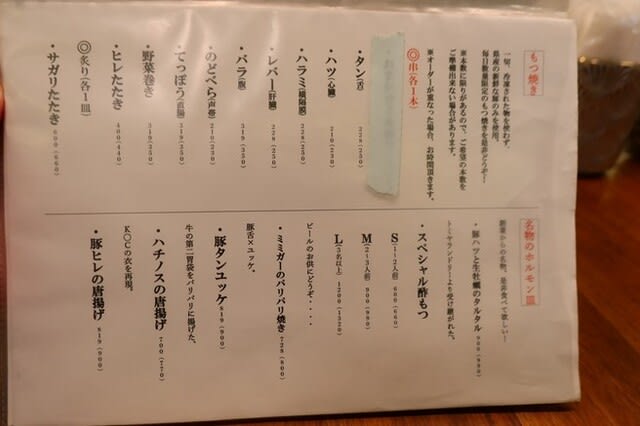 もつ焼き
一切、冷凍された物を使わず、
県産の新鮮な豚のみを使用。
毎日数量限定のもつ焼きを是非どうぞ!
※本数に限りがあるので、ご希望の本数を
ご準備出来ない場合があります。
※オーダーが重なった場合、お時間頂きます。
◎串(各1本)
・タン(舌) 228(250)
・ハツ(心臓) 210(230)
・ハラミ(横隔膜) 228(250)
・レバー(肝臓) 228(250)
・バラ(腹) 319(350)
・のどぺら(声帯) 210(230)
・てっぽう(直腸) 319(350)
・野菜巻き 319(350)
・ヒレたたき 400(440)
◎炙り(各1皿)
・サガリたたき 600(660)
名物のホルモン皿
創業からの名物。是非食べて欲しい!
・豚ハツと生牡蠣のタルタル 900(990)
トミヤランドリーより受け継がれた。
・スペシャル酢もつ
S 1〜2人前 600(660)
M 2〜3人前 900(990)
L 3名以上 1200(1320)
ビールのお供にどうぞ・・・・
・ミミガーのパリパリ焼き 728(800)
豚舌×ユッケ。
・豚タンユッケ 819(900)
牛の第二胃袋をパリパリに揚げた。
・ハチノスの唐揚げ 700(770)
K〇Cの衣を再現。
・豚ヒレの唐揚げ 819(900)